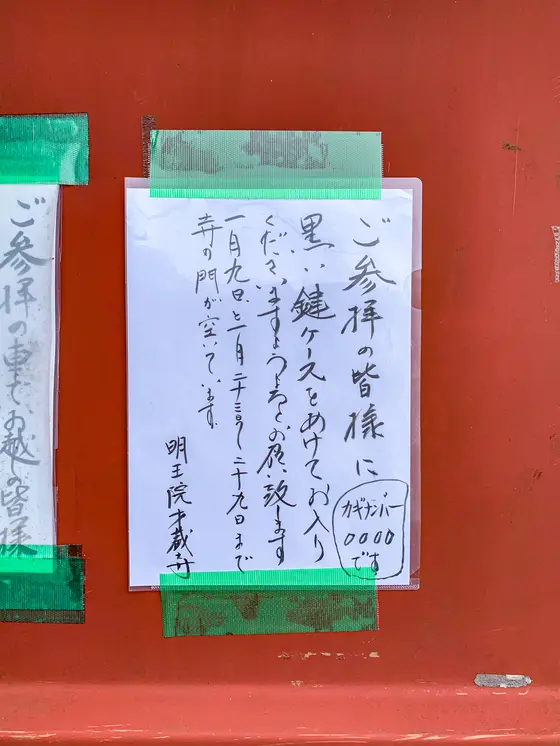 ご参拝の皆様に
カギナンバー
0000
です
黒い鍵ケースをあけてお入り
くださいますようよろしくお願い致します
一月九日と一月二十三日〜二十九日まで
寺の門が空いています。
明王院
ご参拝の車でお越しの皆様